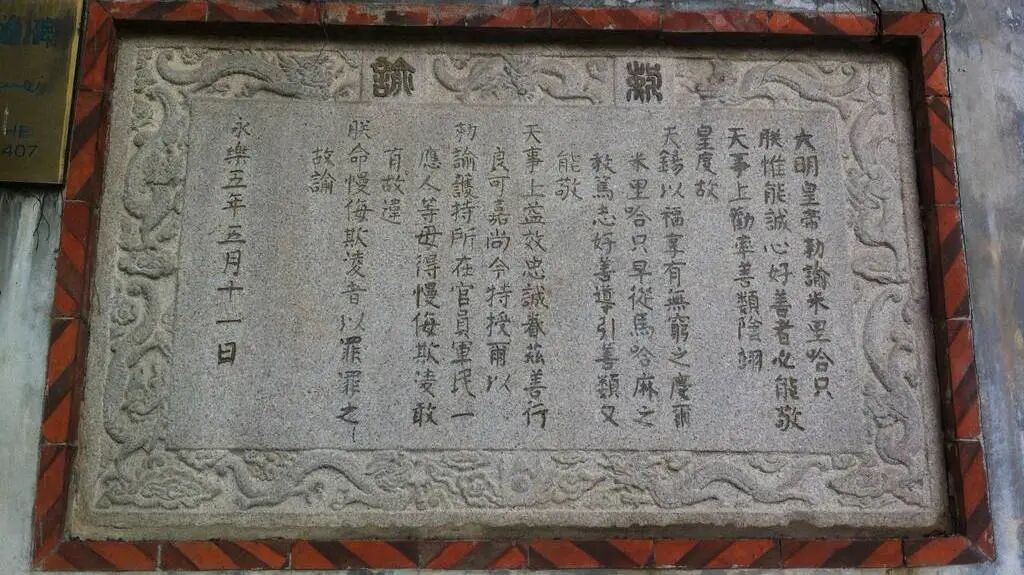 敕諭
大明皇帝勅諭米里哈只
朕惟能誠心好善者必能敬
天事上勸率善類陰翊
皇度故
天錫以福享有無窮之慶爾
米里哈只早從馬哈麻之
教篤志好善導引善類又
能敬
天事上益效忠誠眷茲善行
良可嘉尚今特授爾以
勅諭護持所在官員軍民一
應人等毋得慢侮欺凌敢
有故違
朕命慢侮欺凌者以罪罪之
故諭
永樂五年五月十一日
HE
407